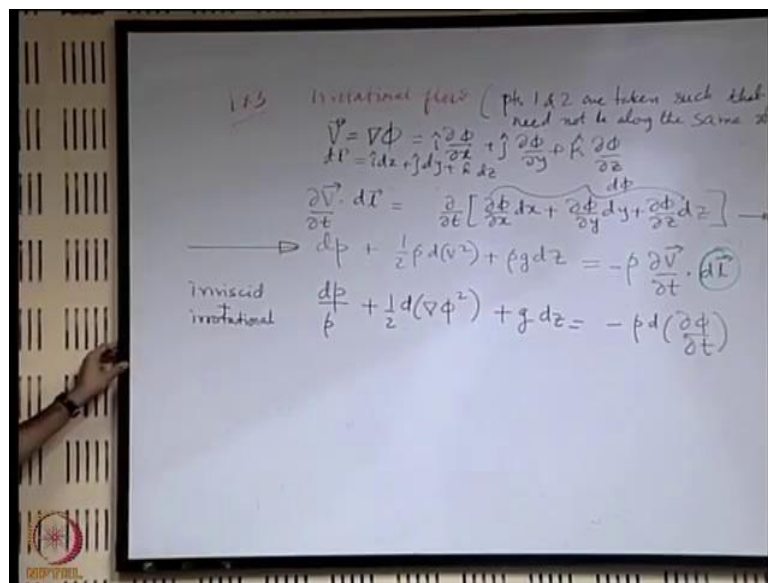 Irrotational flow ( pts 1 & 2 are taken such that
need not be along the same
V⃗ = ∇Φ = î ∂Φ/∂x + ĵ ∂Φ/∂y + k̂ ∂Φ/∂z
dl⃗ = î dx + ĵ dy + k̂ dz
dΦ
∂V⃗/∂t · dl⃗ = ∂/∂t [ ∂Φ/∂x dx + ∂Φ/∂y dy + ∂Φ/∂z dz ] →
→ dp + 1/2 ρ d(v²) + ρg dz = -ρ ∂V⃗/∂t · dl⃗
inviscid + irrotational dp/ρ + 1/2 d(∇Φ²) + g dz = - ρ d(∂Φ/∂t)
NPTEL